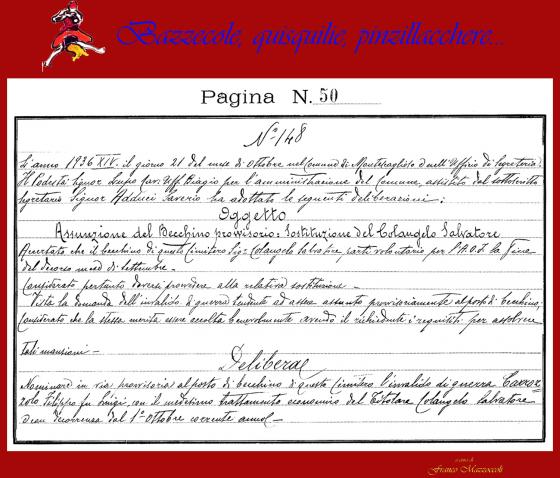 Bazzecole, quisquilie, pinzillacchere...
Pagina N. 50
N° 148
L'anno 1936 XIV. il giorno 21 del mese di Ottobre nel Comune di Montescaglioso e nell'Ufficio di Segreteria.
Il Podestà Signor Scupo Cav. Uff. Biagio per l'amministrazione del Comune, assistito dal sottoscritto
Segretario Signor Adduci Saverio ha adottato le seguenti deliberazioni:
Oggetto
Assunzione del Becchino provvisorio: Sostituzione del Colangelo Salvatore
Accertato che il becchino di questo Cimitero Sig. Colangelo Salvatore, partì volontario per l'A.O.I. la fine
del decorso mese di Settembre.
Considerato pertanto doversi provvedere alla relativa sostituzione.
Vista la domanda dell'invalido di guerra tendente ad essere assunto provvisoriamente al posto di becchino,
Considerato che la stessa merita essere accolta benevolmente avendo il richiedente i requisiti per assolvere
tali mansioni —
Delibera
Nominare in via provvisoria al posto di becchino di questo Cimitero l'invalido di guerra Carroz
zolo Filippo fu Luigi, con il medesimo trattamento economico del titolare Colangelo Salvatore
e con decorrenza dal 1° Ottobre corrente anno —
a cura di
Franco Mazzoccoli